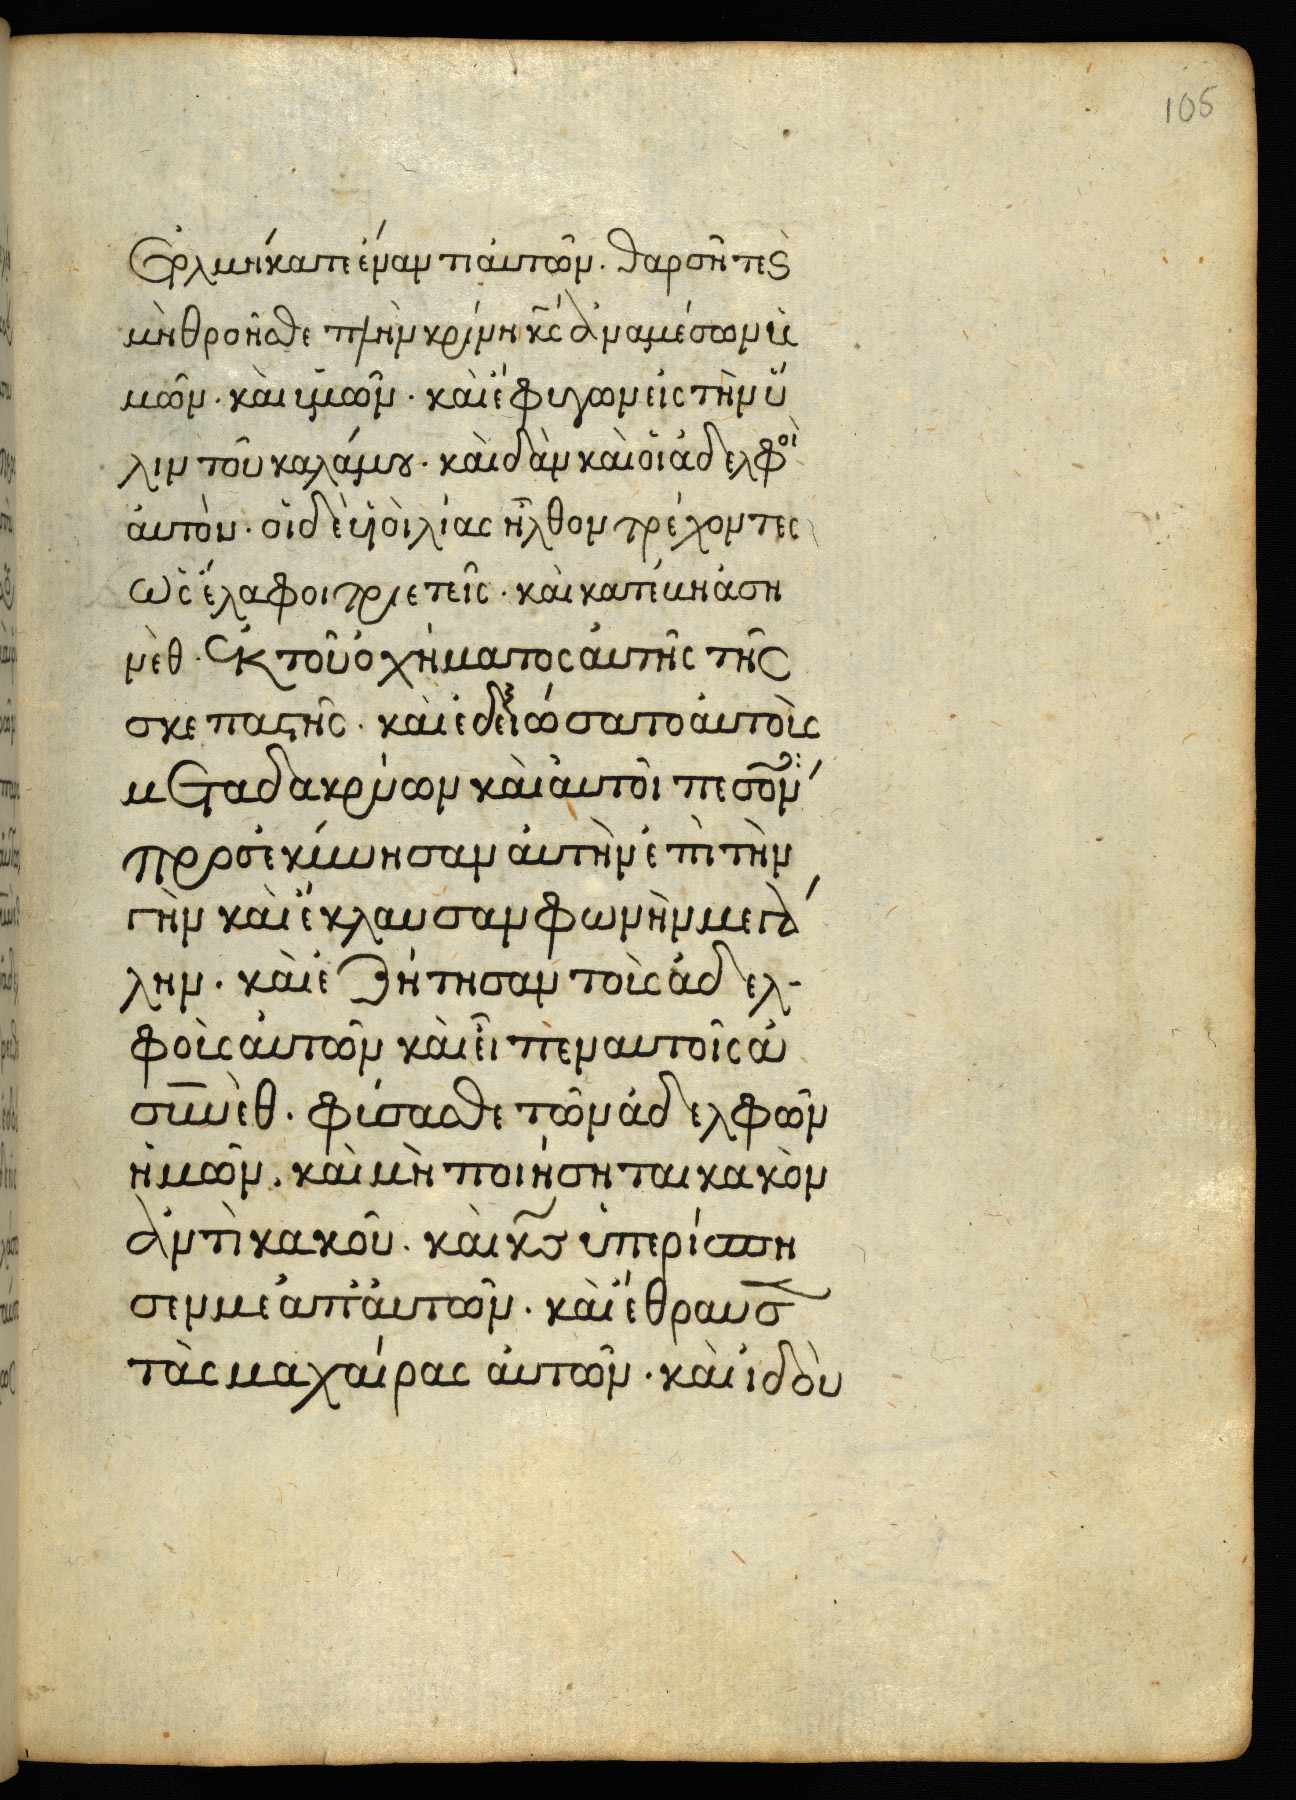 105
ἐρλμήκατε ἐναντι ἀυτῶν. θαρσῆτε
μὴ θροῆσθε πλὴν κρίνη κς ἀναμέσων ὑ
μῶν. καὶ ἡμῶν. καὶ ἔφυγων εἰς τὴν ὕ
λιν τοῦ καλάμου. καὶ δὰν καὶ οἱ ἀδελφοὶ
ἀυτὸν. οἱ δὲ ὑιοὶ λίας ἦλθον τρέχοντες
ὡς ἔλαφοι τριετεῖς. καὶ κατέκνἀση
νὲθ. ἐκ τοῦ ὀχήματος ἀυτῆς τῆς
σκεπαστῆς. καὶ ἐδεξιώσατο ἀυτοὶς
μεταδακρύων καὶ ἀυτοὶ πεσὸν
προσεκύνησαν ἀυτὴν ἐπὶ τὴν
γὴν καὶ ἔκλαυσαν φωνὴν μεγά
λην. καὶ ἐζήτησαν τοὶς ἀδελ-
φοὶς ἀυτῶν καὶ εἶπὲν αυτοῖς ἀ
συνὲθ. φίσασθε τῶν ἀδελφῶν
ἡμῶν. καὶ μὴ ποιήσηται κακὸν
ἀντὶ κακοῦ. καὶ κς ὑπερίσπη
σεν με ἀπ ἀυτῶν. καὶ ἔθραυσε
τὰς μαχαίρας ἀυτῶν. καὶ ἰδοὺ